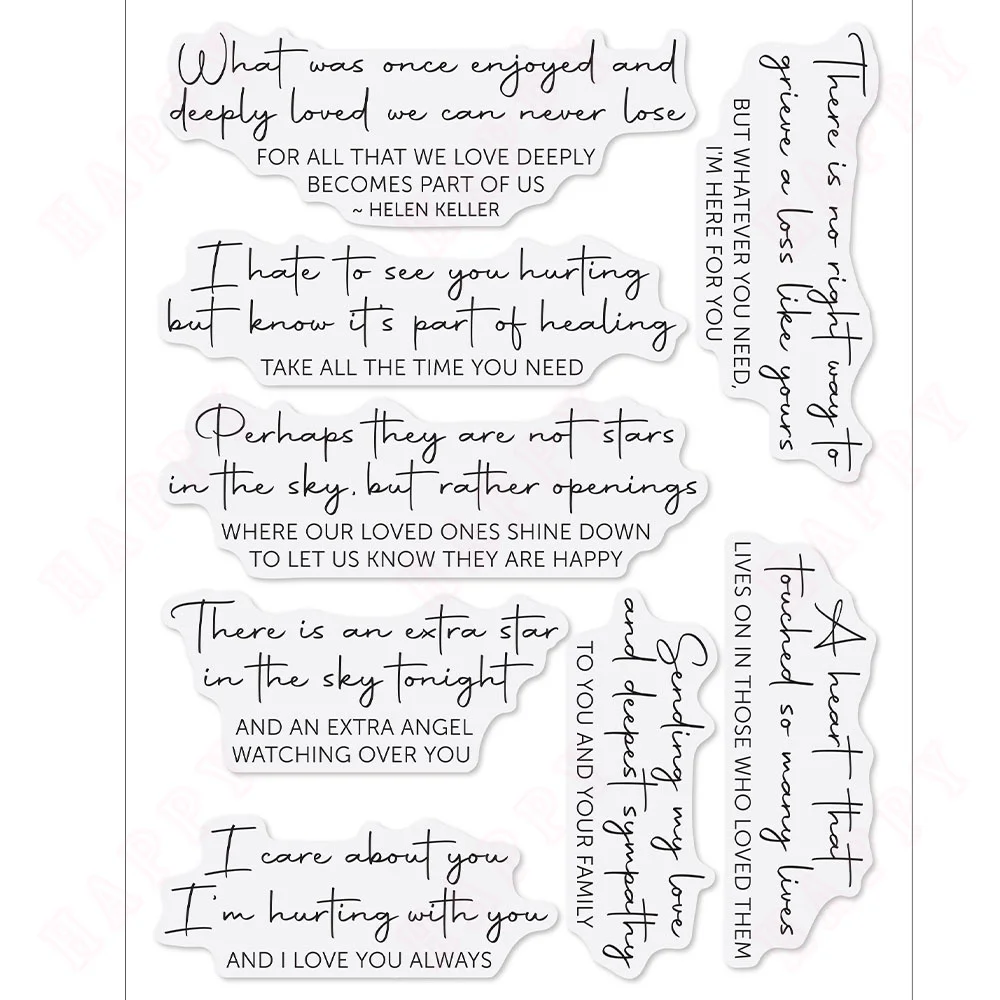 What was once enjoyed and
deeply loved we can never lose
FOR ALL THAT WE LOVE DEEPLY
BECOMES PART OF US
~ HELEN KELLER
There is no right way to
grieve a loss like yours
BUT WHATEVER YOU NEED,
I'M HERE FOR YOU
I hate to see you hurting
but know it's part of healing
TAKE ALL THE TIME YOU NEED
Perhaps they are not stars
in the sky, but rather openings
WHERE OUR LOVED ONES SHINE DOWN
TO LET US KNOW THEY ARE HAPPY
There is an extra star
in the sky tonight
AND AN EXTRA ANGEL
WATCHING OVER YOU
Sending my love
and deepest sympathy
TO YOU AND YOUR FAMILY
A heart that
touched so many lives
LIVES ON IN THOSE WHO LOVED THEM
I care about you
I'm hurting with you
AND I LOVE YOU ALWAYS
HAPPY
HAPPY
HAPPY
HAPPY